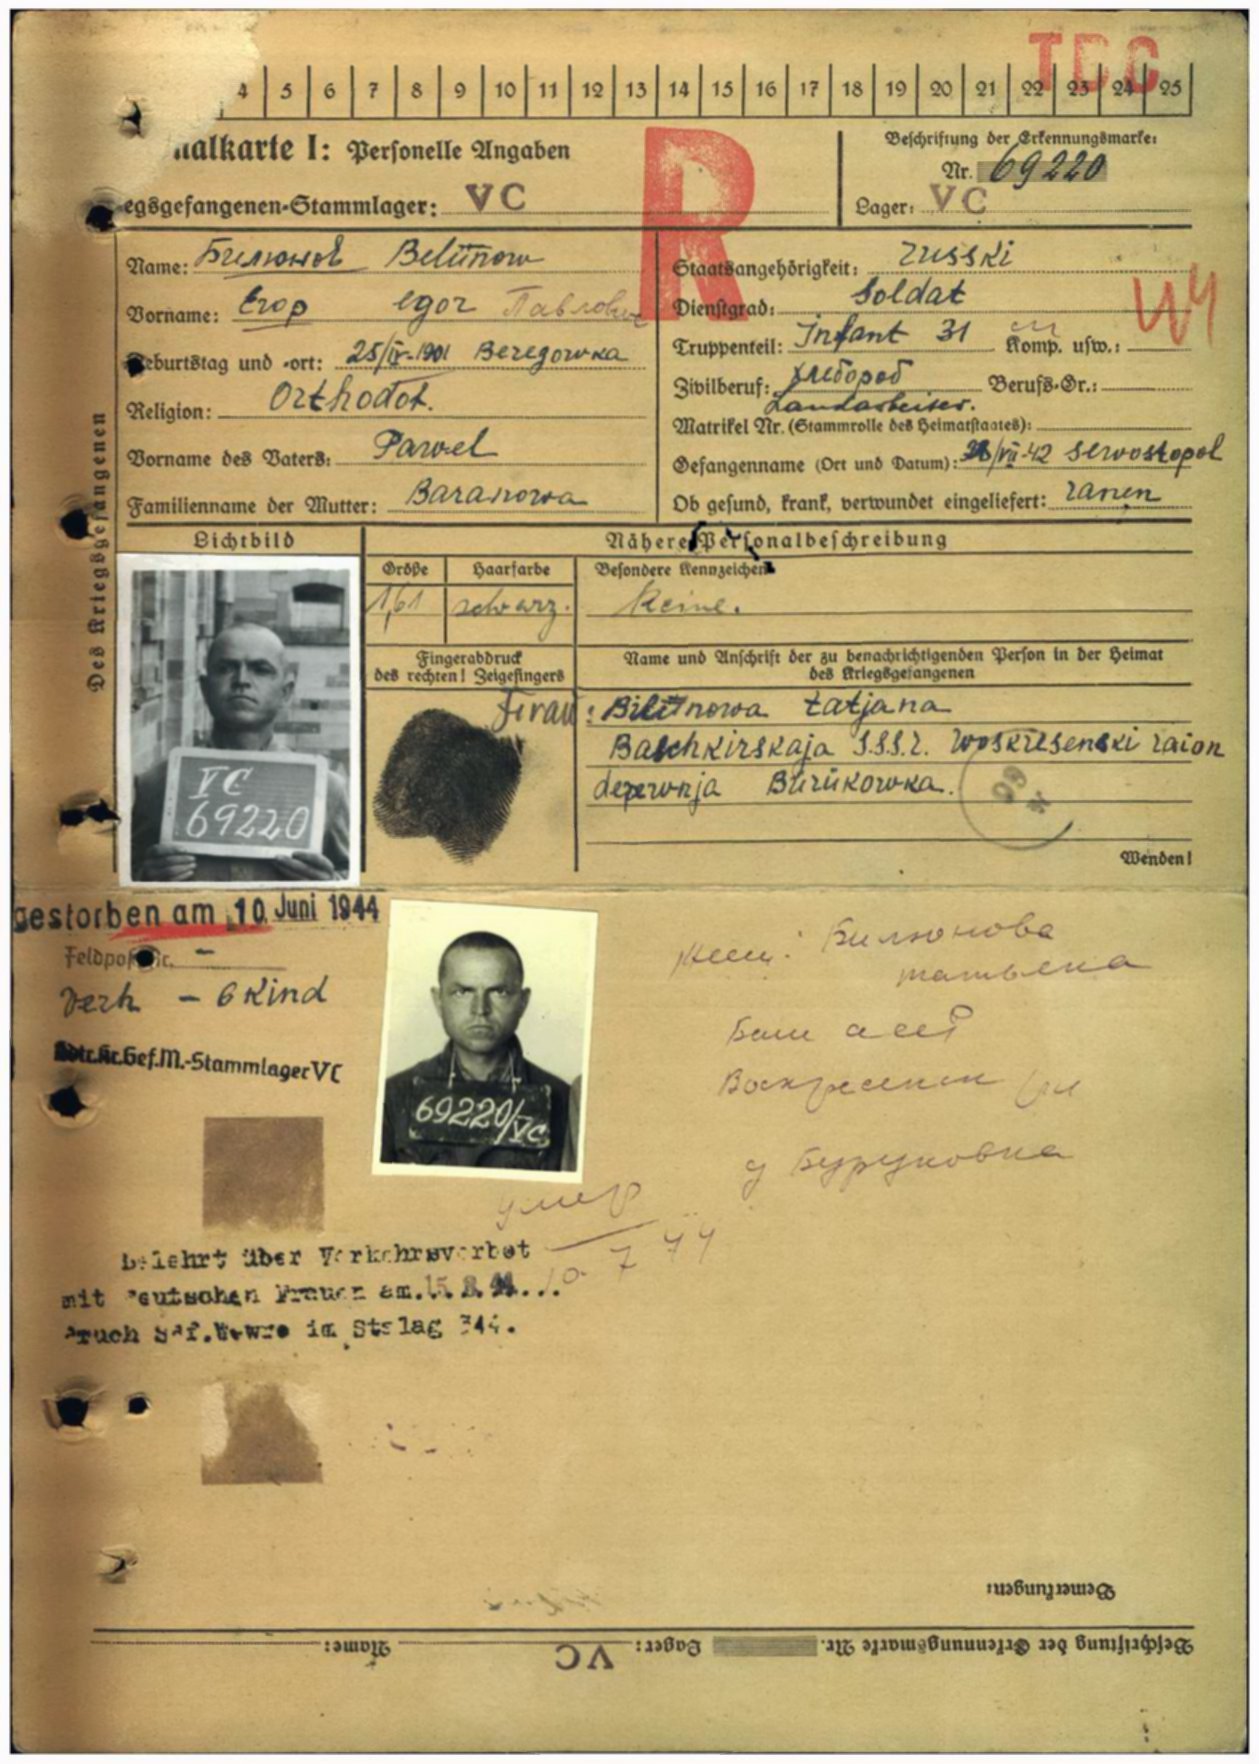 TDC
4 5 6 7 8 9 10 11 12 13 14 15 16 17 18 19 20 21 22 23 24 25
nalkarte I: Personelle Angaben
egsgefangenen-Stammlager: VC
Beschriftung der Erkennungsmarke:
Nr. 69220
Lager: VC
R
Des Kriegsgefangenen
Name: Билюнов Belünow
Vorname: Егор Egor Павлович
Geburtstag und -ort: 25/IV-1901 Beregowka
Religion: Orthodot.
Vorname des Vaters: Pawel
Familienname der Mutter: Baranowa
Staatsangehörigkeit: russki
Dienstgrad: Soldat
Truppenteil: Infant 31 Komp. usw.:
Zivilberuf: хлебороб Berufs-Gr.:
Landarbeiter.
Matrikel Nr. (Stammrolle des Heimatstaates):
Gefangenname (Ort und Datum): /VII-42 Sewostopol
Ob gesund, krank, verwundet eingeliefert: ranen
Lichtbild
Nähere Personalbeschreibung
Größe Haarfarbe Besondere Kennzeichen
1,61 schwarz. Keine.
Fingerabdruck
des rechten! Zeigefingers
Name und Anschrift der zu benachrichtigenden Person in der Heimat
des Kriegsgefangenen
Frau: Bilünowa tatjana
Baschkirskaja S.S.S.r. Woskresenski raion
derewnja Burükowka.
VC
69220
Wenden!
gestorben am 10. Juni 1944
Feldpost Nr. -
Verh - 6 Kind
Kr.Gef.M.-Stammlager VC
69220/VC
Билюнова
татьяна
Баш
Воскресенск
Буруковка
умер
10.7 44
Belehrt über Verkehrsverbot
mit deutschen Frauen am. 15. 44...
im Stalag 344.
Bemerkungen:
Beschriftung der Erkennungsmarke Nr. Lager: VC Name: